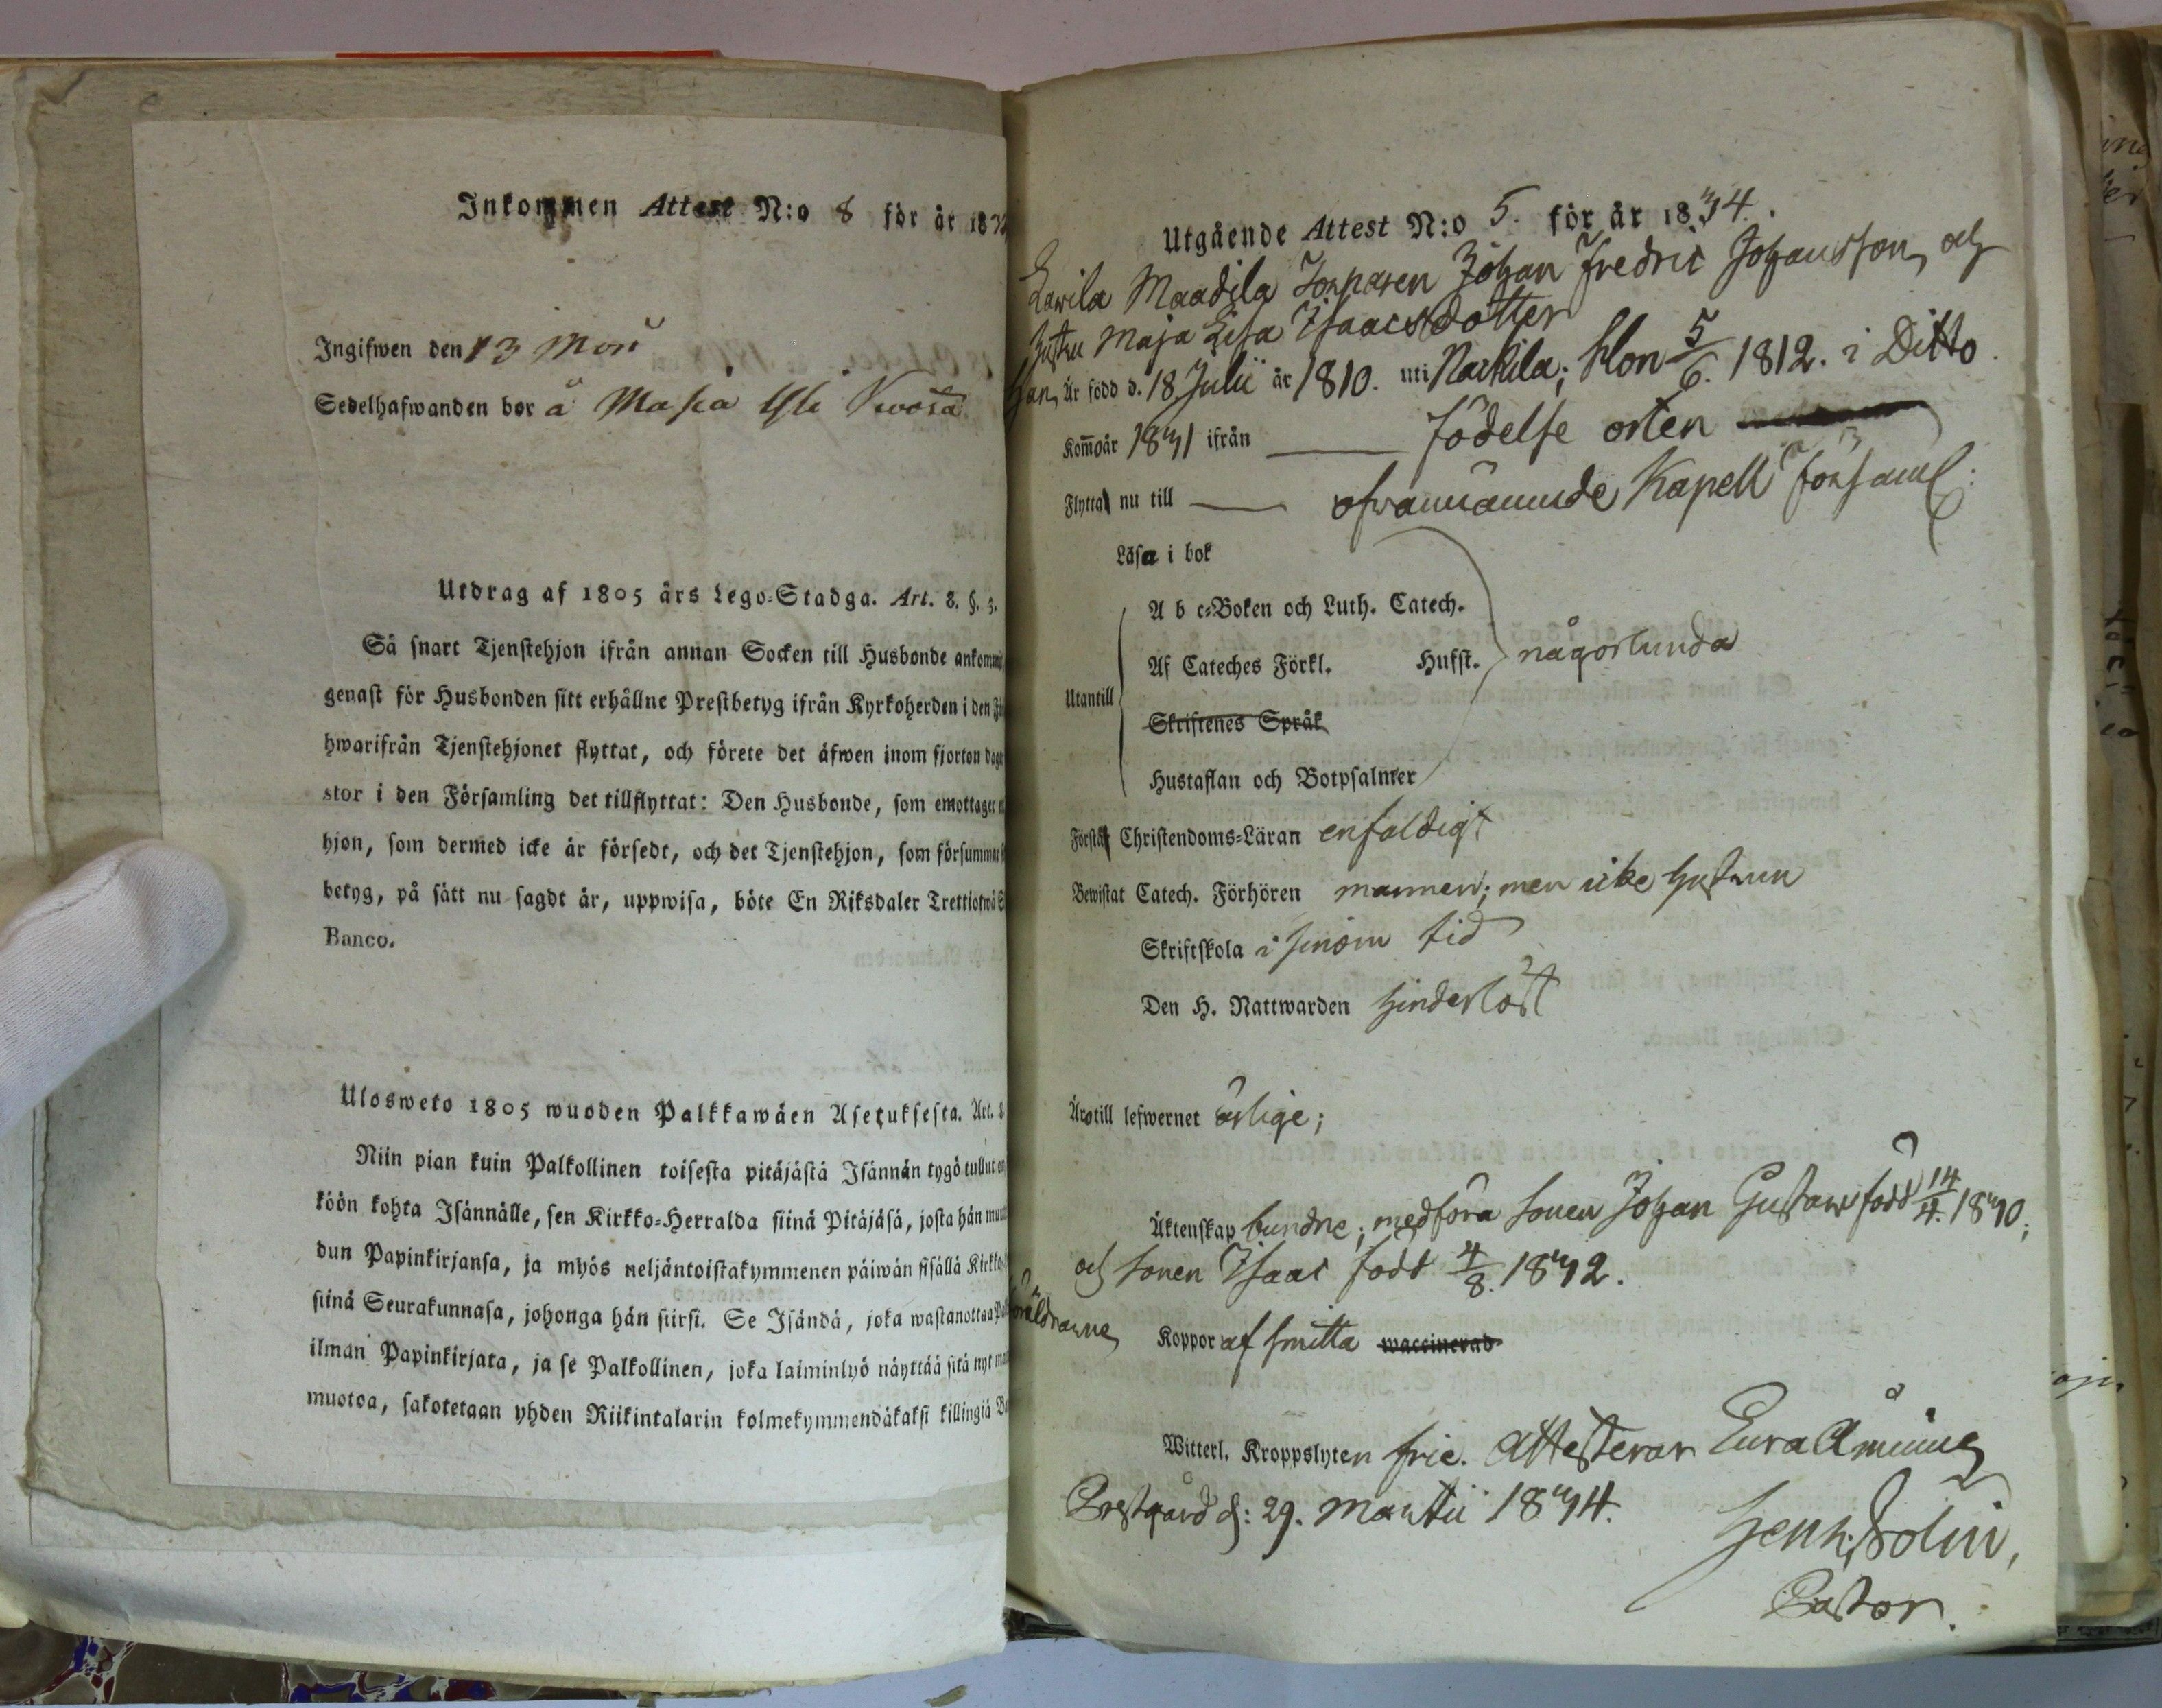 Inkommen Attest N:o 8 för år 18
Ingifwen den 13 Maji
Sedelhafwanden bor å
Utdrag af 1805 års Lego-Stadga. Art. 8. §. 3.
Så snart Tjenstehjon ifrån annan Socken till Husbonde
genast för Husbonden sitt erhållne Prestbetyg ifrån Kyrkoherden i den
hwarifrån Tjenstehjonet flyttat, och förete det äfwen inom fjorton
stor i den Församling det tillflyttat: Den Husbonde, som emottager
hjon, som dermed icke är försedt, och det Tjenstehjon, som försummar
betyg, på sätt nu sagdt är, uppwisa, böte En Riksdaler Trettiotwå
Banco.
Ulosweto 1805 wuoden Palkkawäen Asetuksesta. Art. 8
Niin pian kuin Palkollinen toisesta pitäjästä Isännän tygö tullut on
köön kohta Isännälle, sen Kirkko-Herralda siinä Pitäjäsä, josta hän
dun Papinkirjansa, ja myös neljäntoistakymmenen päiwän sisällä
siinä Seurakunnasa, johonga hän siirsi. Se Isändä, joka wastanottaa
ilman Papinkirjata, ja se Palkollinen, joka laiminlyö näyttää sitä nyt
muotoa, sakotetaan yhden Riikintalarin kolmekymmendäkaksi killingiä
Utgående Attest N:o 5. för år 1834.
Lawila Maadila Torparen Johan Fredric Johansson, och
Hustru Maja Lisa Isaacsdotter
Han, Är född d. 18 Julii år 1810. uti Nackila; Hon 5/6. 1812. i Ditto.
Kom̄o år 1831 ifrån födelse orten
Flytta nu till ofwannämnde Kapell Församl:
Läsa i bok
A b c-Boken och Luth. Catech.
Af Cateches Förkl. Husst. någorlunda
Utantill
Skriftenes Språk
Hustaflan och Botpsalmer
Förstå Christendoms-Läran enfaldigt
Bewistat Catech. Förhören mannen; men icke Hustrun
Skriftskola i sinom tid
Den H. Nattwarden hinderlöst
Äro till lefwernet ärlige;
Äktenskap bundne; medföra sonen Johan Gustaw född 14/4. 1830;
och sonen Isaac född 4/8. 1832.
Föräldrarne Koppor af smitta waccinerad
Witterl. Kroppslyten frie. Attesterar Eura Åminne
Prestgård d: 29. Martii 1834.
Henr. Bolin,
Pastor.